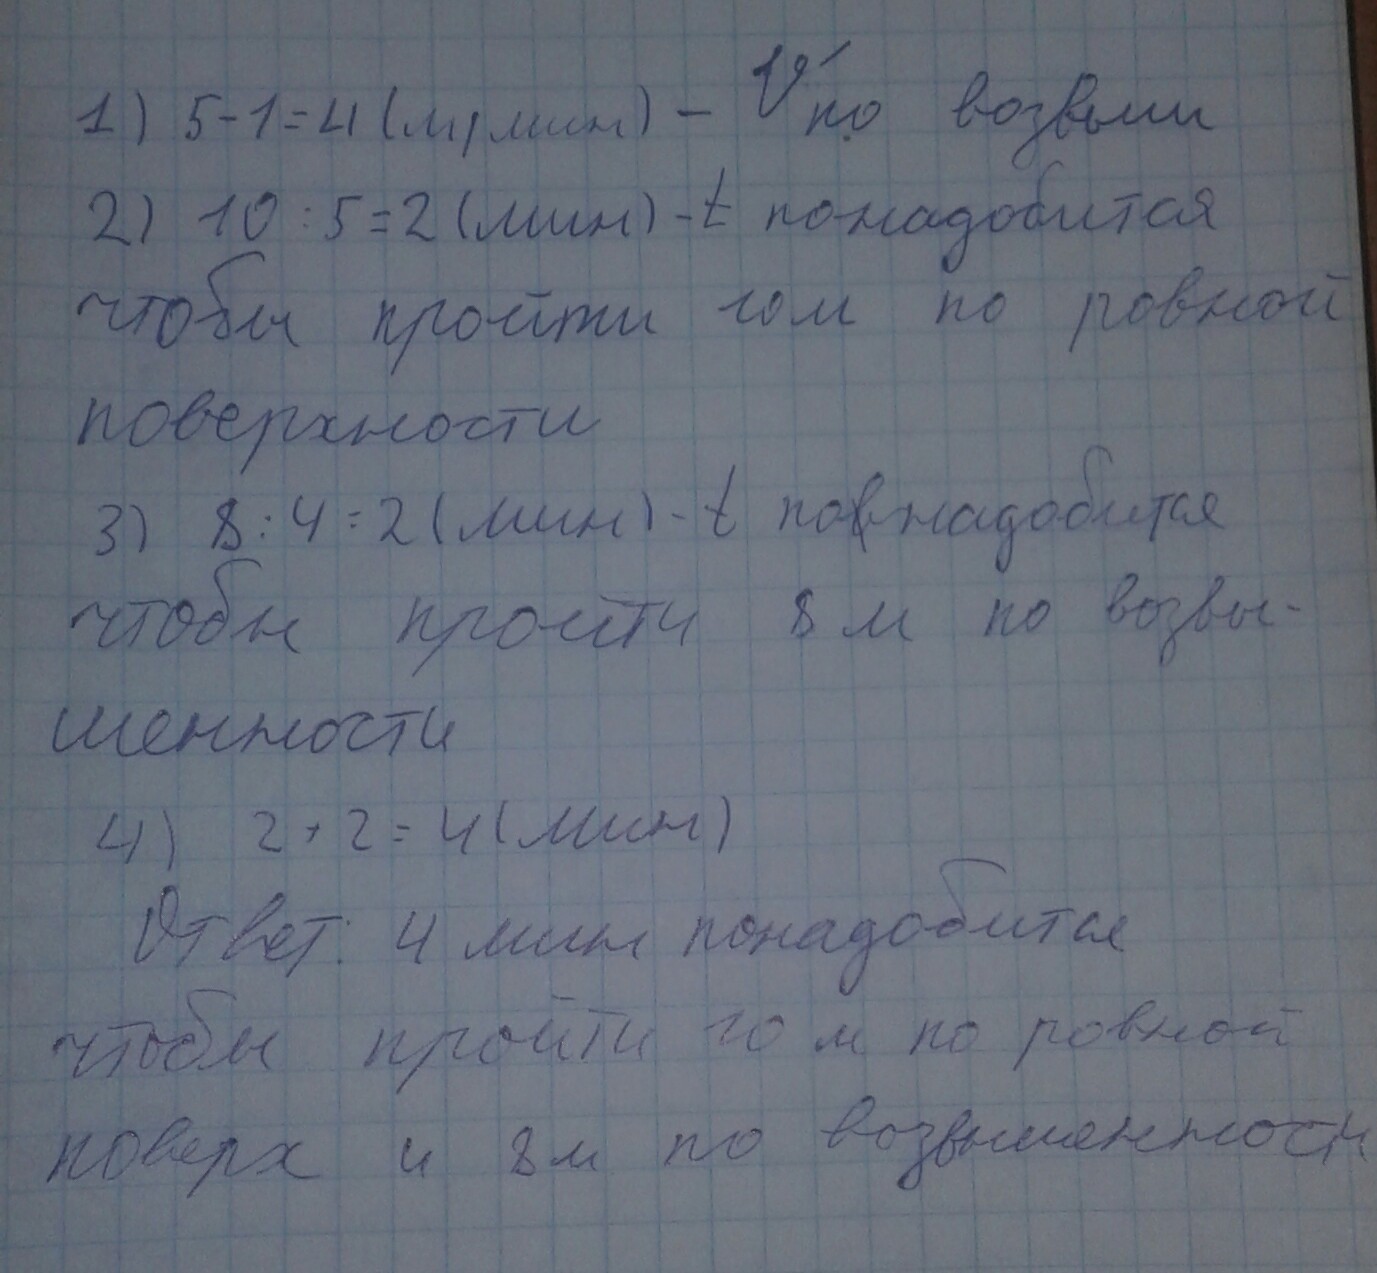 1) 5-1=4 (м/мин) - V по возвыш
2) 10:5=2 (мин) - t понадобится
чтобы пройти 10м по ровной
поверхности
3) 8:4=2 (мин) - t понадобится
чтобы пройти 8 м по возвы-
шенности
4) 2+2=4 (мин)
Ответ: 4 мин понадобится
чтобы пройти 10 м по ровной
поверх и 8м по возвышенности